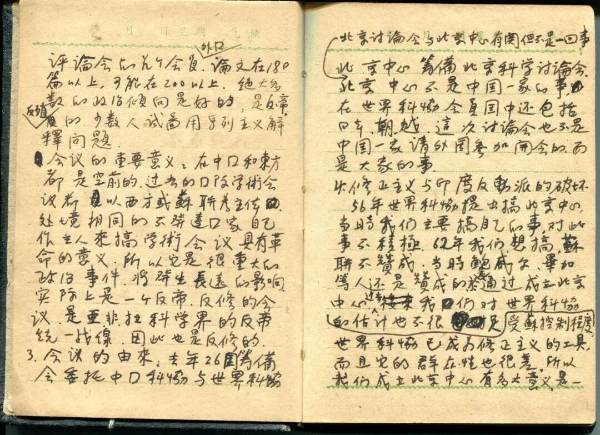 外口
评论会的允今会员,论文在180
篇以上,可能在200以上,绝大多
数的政治倾向是好的,是反帝
反修的,少数人试着用马列主义解
释问题。
会议的重要意义:在中口和东方
都是空前的,过去的口际学術会
议都是以西方或蘇联为主体,
处境相同的不发達口家自己
作主人来搞学術会议具有革
命的意义,所以它是很重大的
政治事件,将発生長远的影响
实际上是一个反帝、反修的会
议,是亚非拉科学界的反帝
统一战線,因此也是反修的。
3.会议的由来,去年26国筹備
会委托中口科協与世界科協
北京讨論会与北京中心有関但不是一回事
北京中心筹備北京科学讨論会,
北京中心不是中国一家的事,
在世界科協会员国中还包括
日本、朝、越,这次讨论会也不是
中国一家请外国参加开会的,而
是大家的事。
4.修正主义与印度反動派的破坏
56年世界科協提出搞北京中心,
当時我们主要搞自己的事,对此
事不積極,62年我们想搞,蘇
联不赞成,当時鲍威尔、畢加
等人还是赞成的,终通过成立北京
中心,过去我们对世界科協
的估计也不很足,受蘇控制程度,
世界科協已成为修正主义的工具,
而且它的群众性也很差,所以
我们成立北京中心有多大意义,是一